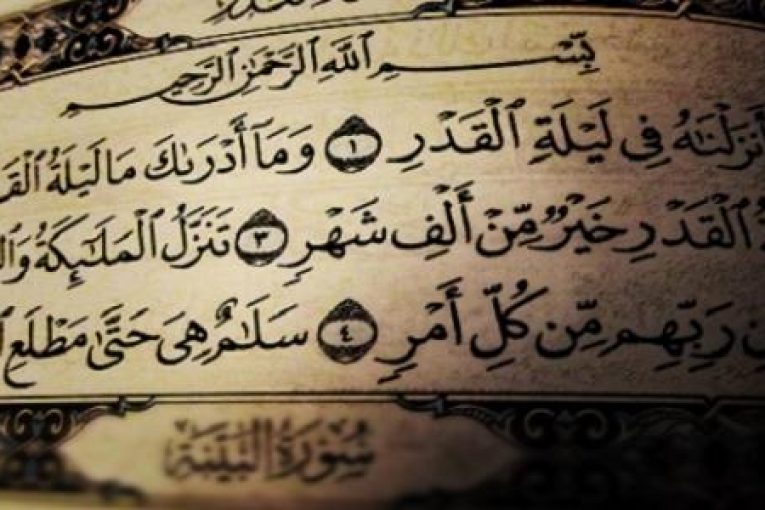 بِسْمِ ٱللَّهِ ٱلرَّحْمَٰنِ ٱلرَّحِيمِ
أَنزَلْنَٰهُ فِى لَيْلَةِ ٱلْقَدْرِ ١ وَمَآ أَدْرَىٰكَ مَا لَيْلَةُ ٱلْقَ
ٱلْقَدْرِ خَيْرٌ مِّنْ أَلْفِ شَهْرٍ ٣ تَنَزَّلُ ٱلْمَلَٰٓئِكَةُ وَٱل
رَبِّهِم مِّن كُلِّ أَمْرٍ ٤ سَلَٰمٌ هِىَ حَتَّىٰ مَطْلَعِ
سُورَةُ البَيِّنَةِ